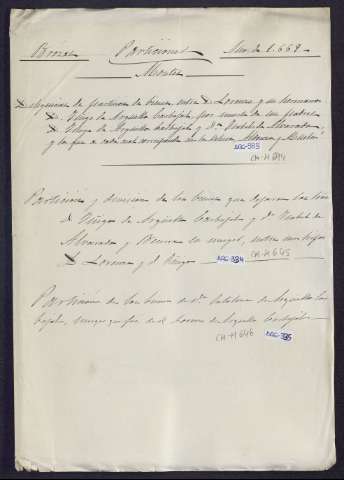 Brozas Particiones Año de 1.669
Montes
Hijuelas de particion de bienes, entre D. Lorenzo y su hermano
D. Diego de Argüello Carbajal, por muerte de sus padres
D. Diego de Argüello Carbajal y D.ª Isabel de Alvarado,
y lo que a cada uno corresponde en la dehesa
ARC-383
CH-H 644
Particion y division de los bienes que dejaron los Sres
D. Diego de Argüello Carbajal y D.ª Isabel de
Alvarado y su muger, entre sus hijos
D. Lorenzo y D. Diego
ARC-384 CH-H 645
Particion de los bienes de D.ª Catalina de Argüello Car
bajal, muger que fue de D. Lorenzo de Argüello Carbajal
CH-H 646 ARC-385